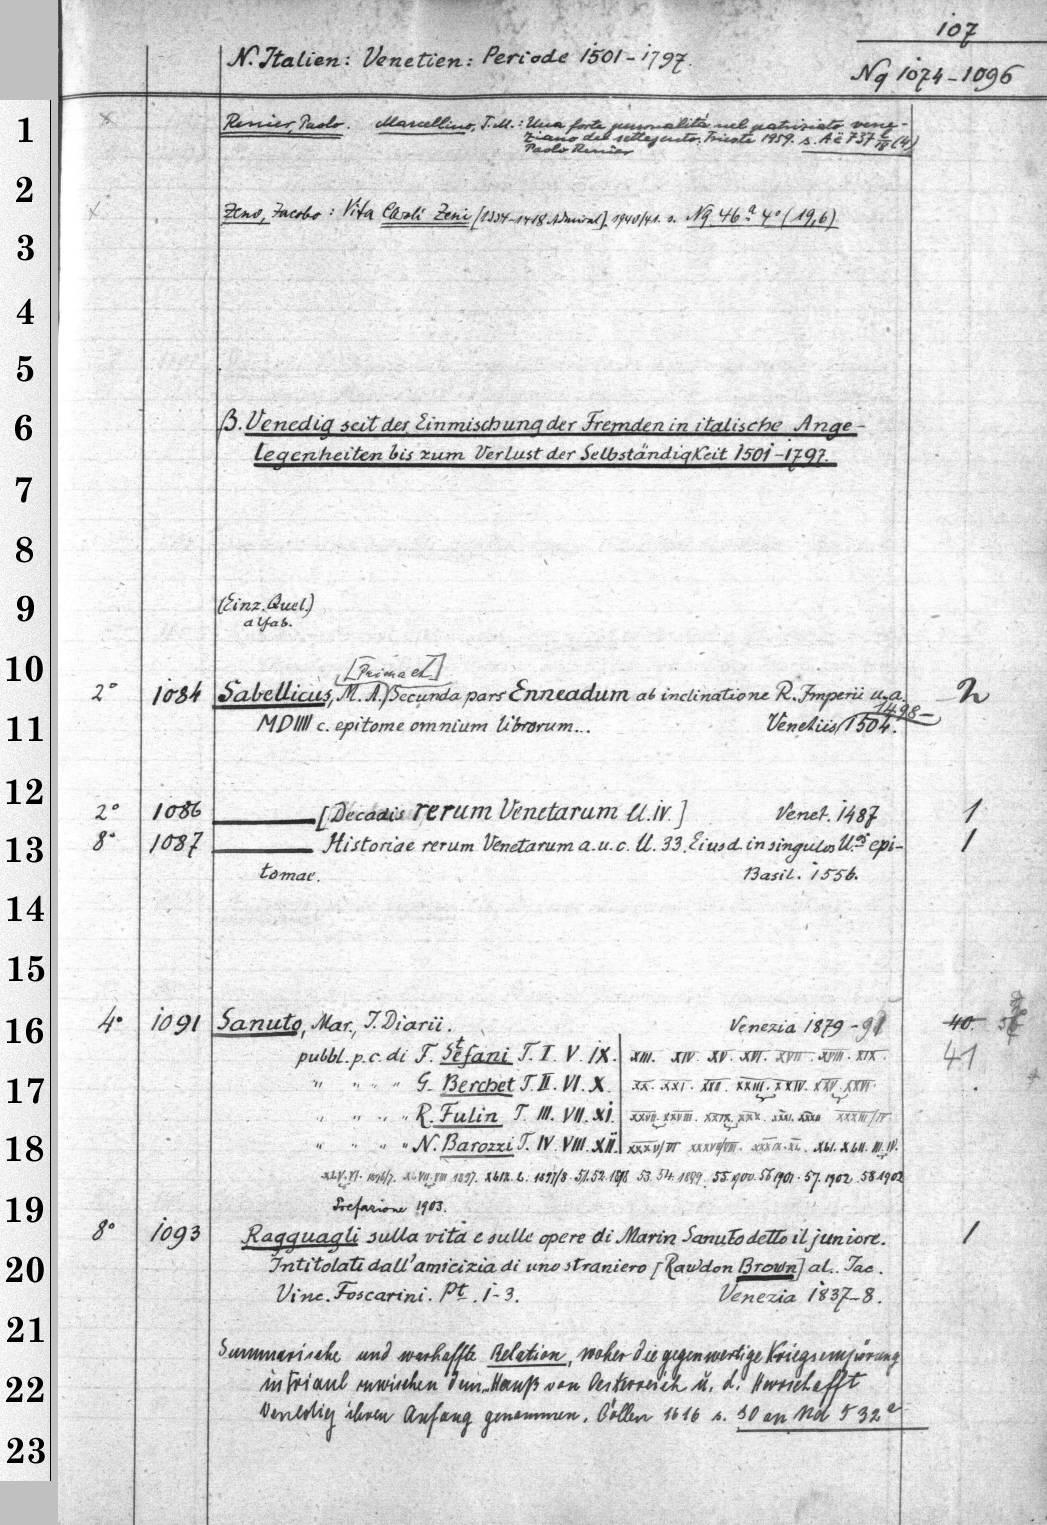 107
N. Italien: Venetien: Periode 1501-1797.
Nq 1074-1096
1
2
3
4
5
6
7
8
9
10
11
12
13
14
15
16
17
18
19
20
21
22
23
x Renier, Paolo. Marcellino, J. M.: Una forte personalità nel patriziato vene-
ziano del settecento. Trieste 1959. s. Aë 737 (4)
Paolo Renier
x Zeno, Jacobo: Vita Caroli Zeni [1334-1418 Admiral]. 1940/41. s. Nq 46a 4° (19,6)
B. Venedig seit der Einmischung der Fremden in italische Ange-
legenheiten bis zum Verlust der Selbständigkeit 1501-1797.
(Einz. Quel.)
alfab.
[Prima et]
2° 1084 Sabellicus, M. A. Secunda pars Enneadum ab inclinatione R. Imperii u. a. 2
1498-
MDIIII c. epitome omnium librorum... Venetiis 1504.
2° 1086 [Decadis rerum Venetarum ll. IV.] Venet. 1487 1
8° 1087 Historiae rerum Venetarum a. u. c. ll. 33. Eiusd. in singulos ll.os epi- 1
tomae. Basil. 1556.
4° 1091 Sanuto, Mar., I. Diarii. Venezia 1879-91 40. 41
pubbl. p. c. di F. Stefani T. I. V. IX. XIII. XIV. XV. XVI. XVII. XVIII. XIX.
" " " " G. Berchet T. II. VI. X. XX. XXI. XXII. XXIII. XXIV. XXV. XXVI.
" " " " R. Fulin T. III. VII. XI. XXVII. XXVIII. XXIX. XXX. XXXI. XXXII XXXIII/IV
" " " " N. Barozzi T. IV. VIII. XII. XXXV/VI XXXVII/VIII. XXXIX. XL. XLI. XLII. III. IV.
XLV. VI. XLVII. VIII 1897. XLIX. L. 1897/8. 51. 52. 1898 53. 54. 1899. 55. 1900. 56 1901. 57. 1902. 58 1902
Prefazione 1903.
8° 1093 Ragguagli sulla vita e sulle opere di Marin Sanuto detto il juniore. 1
Intitolati dall'amicizia di uno straniero [Rawdon Brown] al.. Jac.
Vinc. Foscarini. Pt. 1-3. Venezia 1837-8.
Summarische und warhaffte Relation, woher die gegenwertige Kriegsempörung
in Friaul zwischen dem Hauß von Oesterreich u. d. Herrschafft
Venedig ihren Anfang genommen. Cöllen 1616 s. 30 an Nd 532a